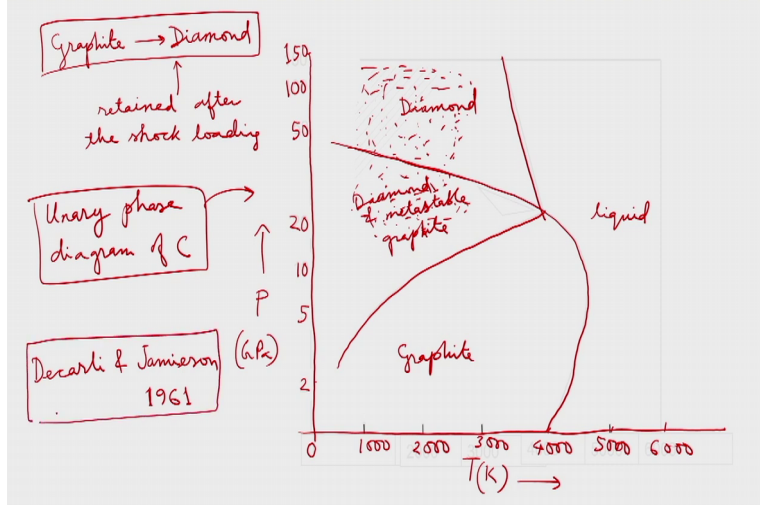 Graphite → Diamond
retained after
the shock loading
Unary phase
diagram of C
Decarli & Jamieson
1961
P
(GPa)
150
100
50
20
10
5
2
Diamond
Diamond
& metastable
graphite
liquid
Graphite
0 1000 2000 3000 4000 5000 6000
T(K) →